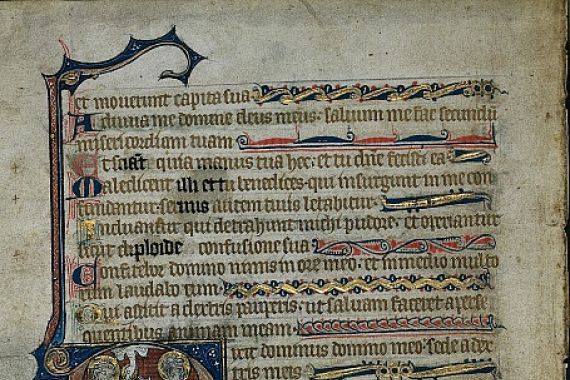 et moverunt capita sua
Adiuva me domine deus meus: salvum me fac secundu
misericordiam tuam
Et sciāt: quia manus tua hec: et tu dn̄e fecisti eā
Maledicent illi et tu benedices: qui insurgunt in me con
fundantur: servus autem tuus letabitur
Induantur qui detrahunt michi pudore: et operiantur
sicut diploide confusione sua
Confitebor domino nimis in ore meo: et in medio multo
rum laudabo eum
Qui astitit a dextris pauperis: ut salvam faceret a perse
quentibus animam meam
ixit dominus domino meo: sede a dex
tris meis